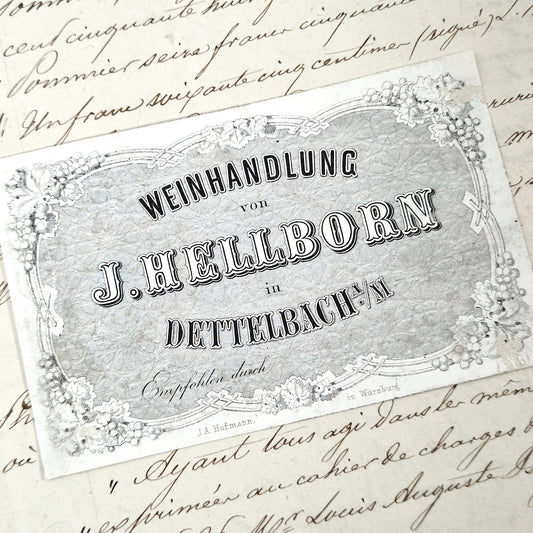 cent cinquante huit
Pommier seize francs cinquante
Un franc soixante cinq centimes (signé) L.
WEINHANDLUNG
von
J. HELLBORN
in
DETTELBACH a/M
Empfohlen durch
J.A. Hofmann. in Würzburg
où
" Ayant tous agi dans le même
" exprimée au cahier de charges d
Mr Louis Auguste